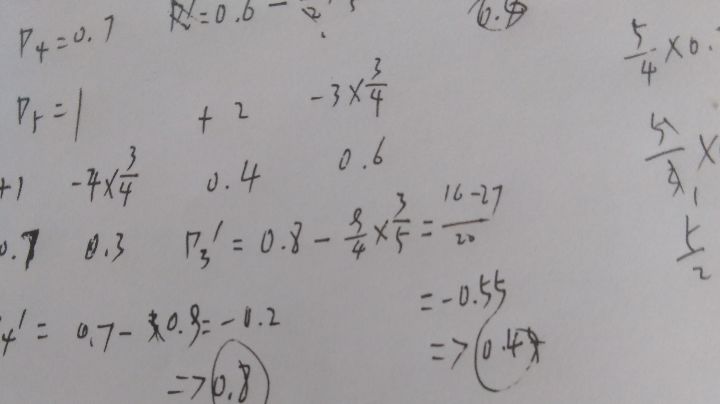 P4=0.7
=0.6 -
5/4 × 0.
P5=1 +2 -3×3/4
+1 -4×3/4 0.4 0.6
0.7 0.3 P3' = 0.8 - 9/4 × 3/5 = 16-27/20
5/2
= -0.55
4' = 0.7 - 0.9 = -0.2
=> 0.8